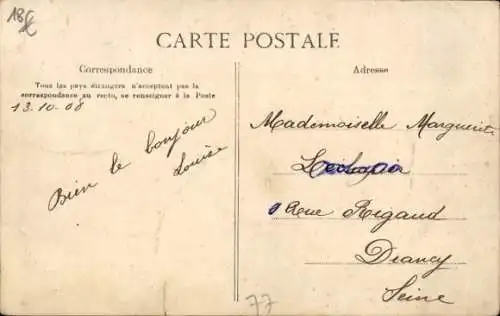 18€
CARTE POSTALE
Correspondance
Tous les pays étrangers n'acceptent pas la
correspondance au recto, se renseigner à la Poste
13.10-08
Bien le bonjour
Louise
Adresse
Mademoiselle Marguerite
Rue Rigaud
Drancy
Seine
77